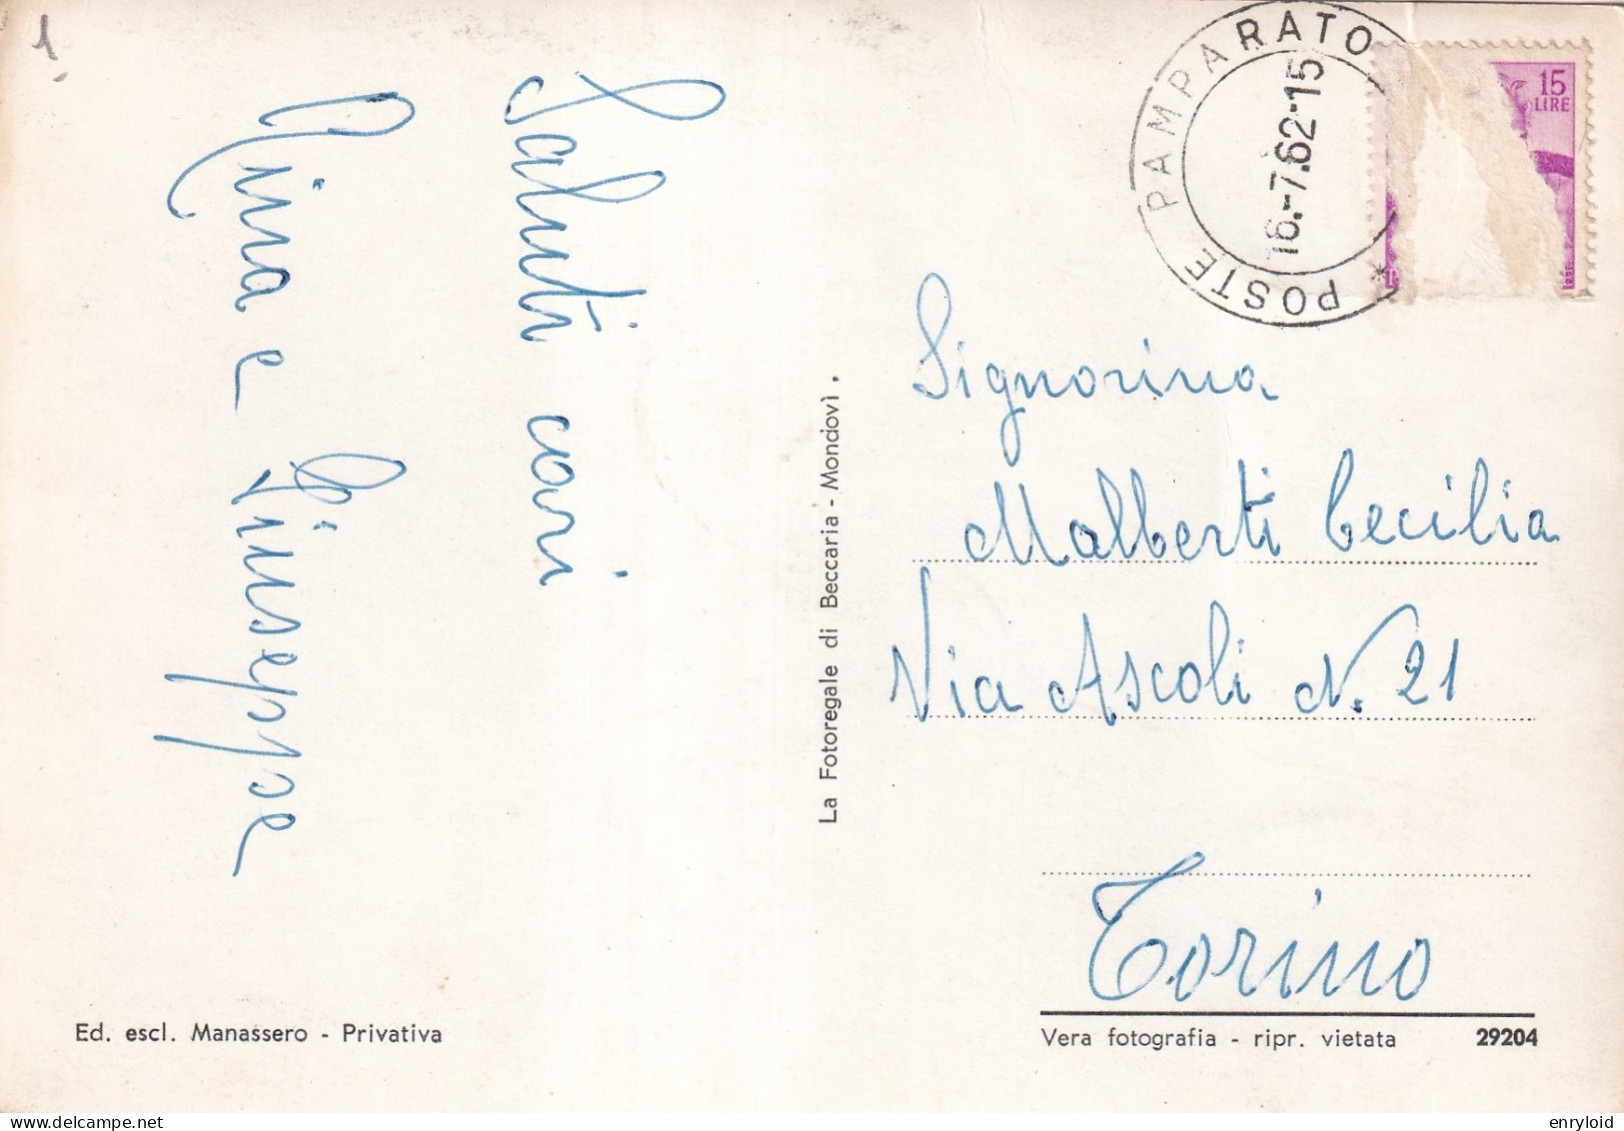 1
Saluti cari
Rina e Giuseppe
POSTE PAMPARATO *
16.-7.62-15
15
LIRE
Signorina
Malberti Cecilia
Via Ascoli N. 21
Torino
La Fotoregale di Beccaria - Mondovì.
Ed. escl. Manassero - Privativa
Vera fotografia - ripr. vietata 29204
www.delcampe.net
enryloid